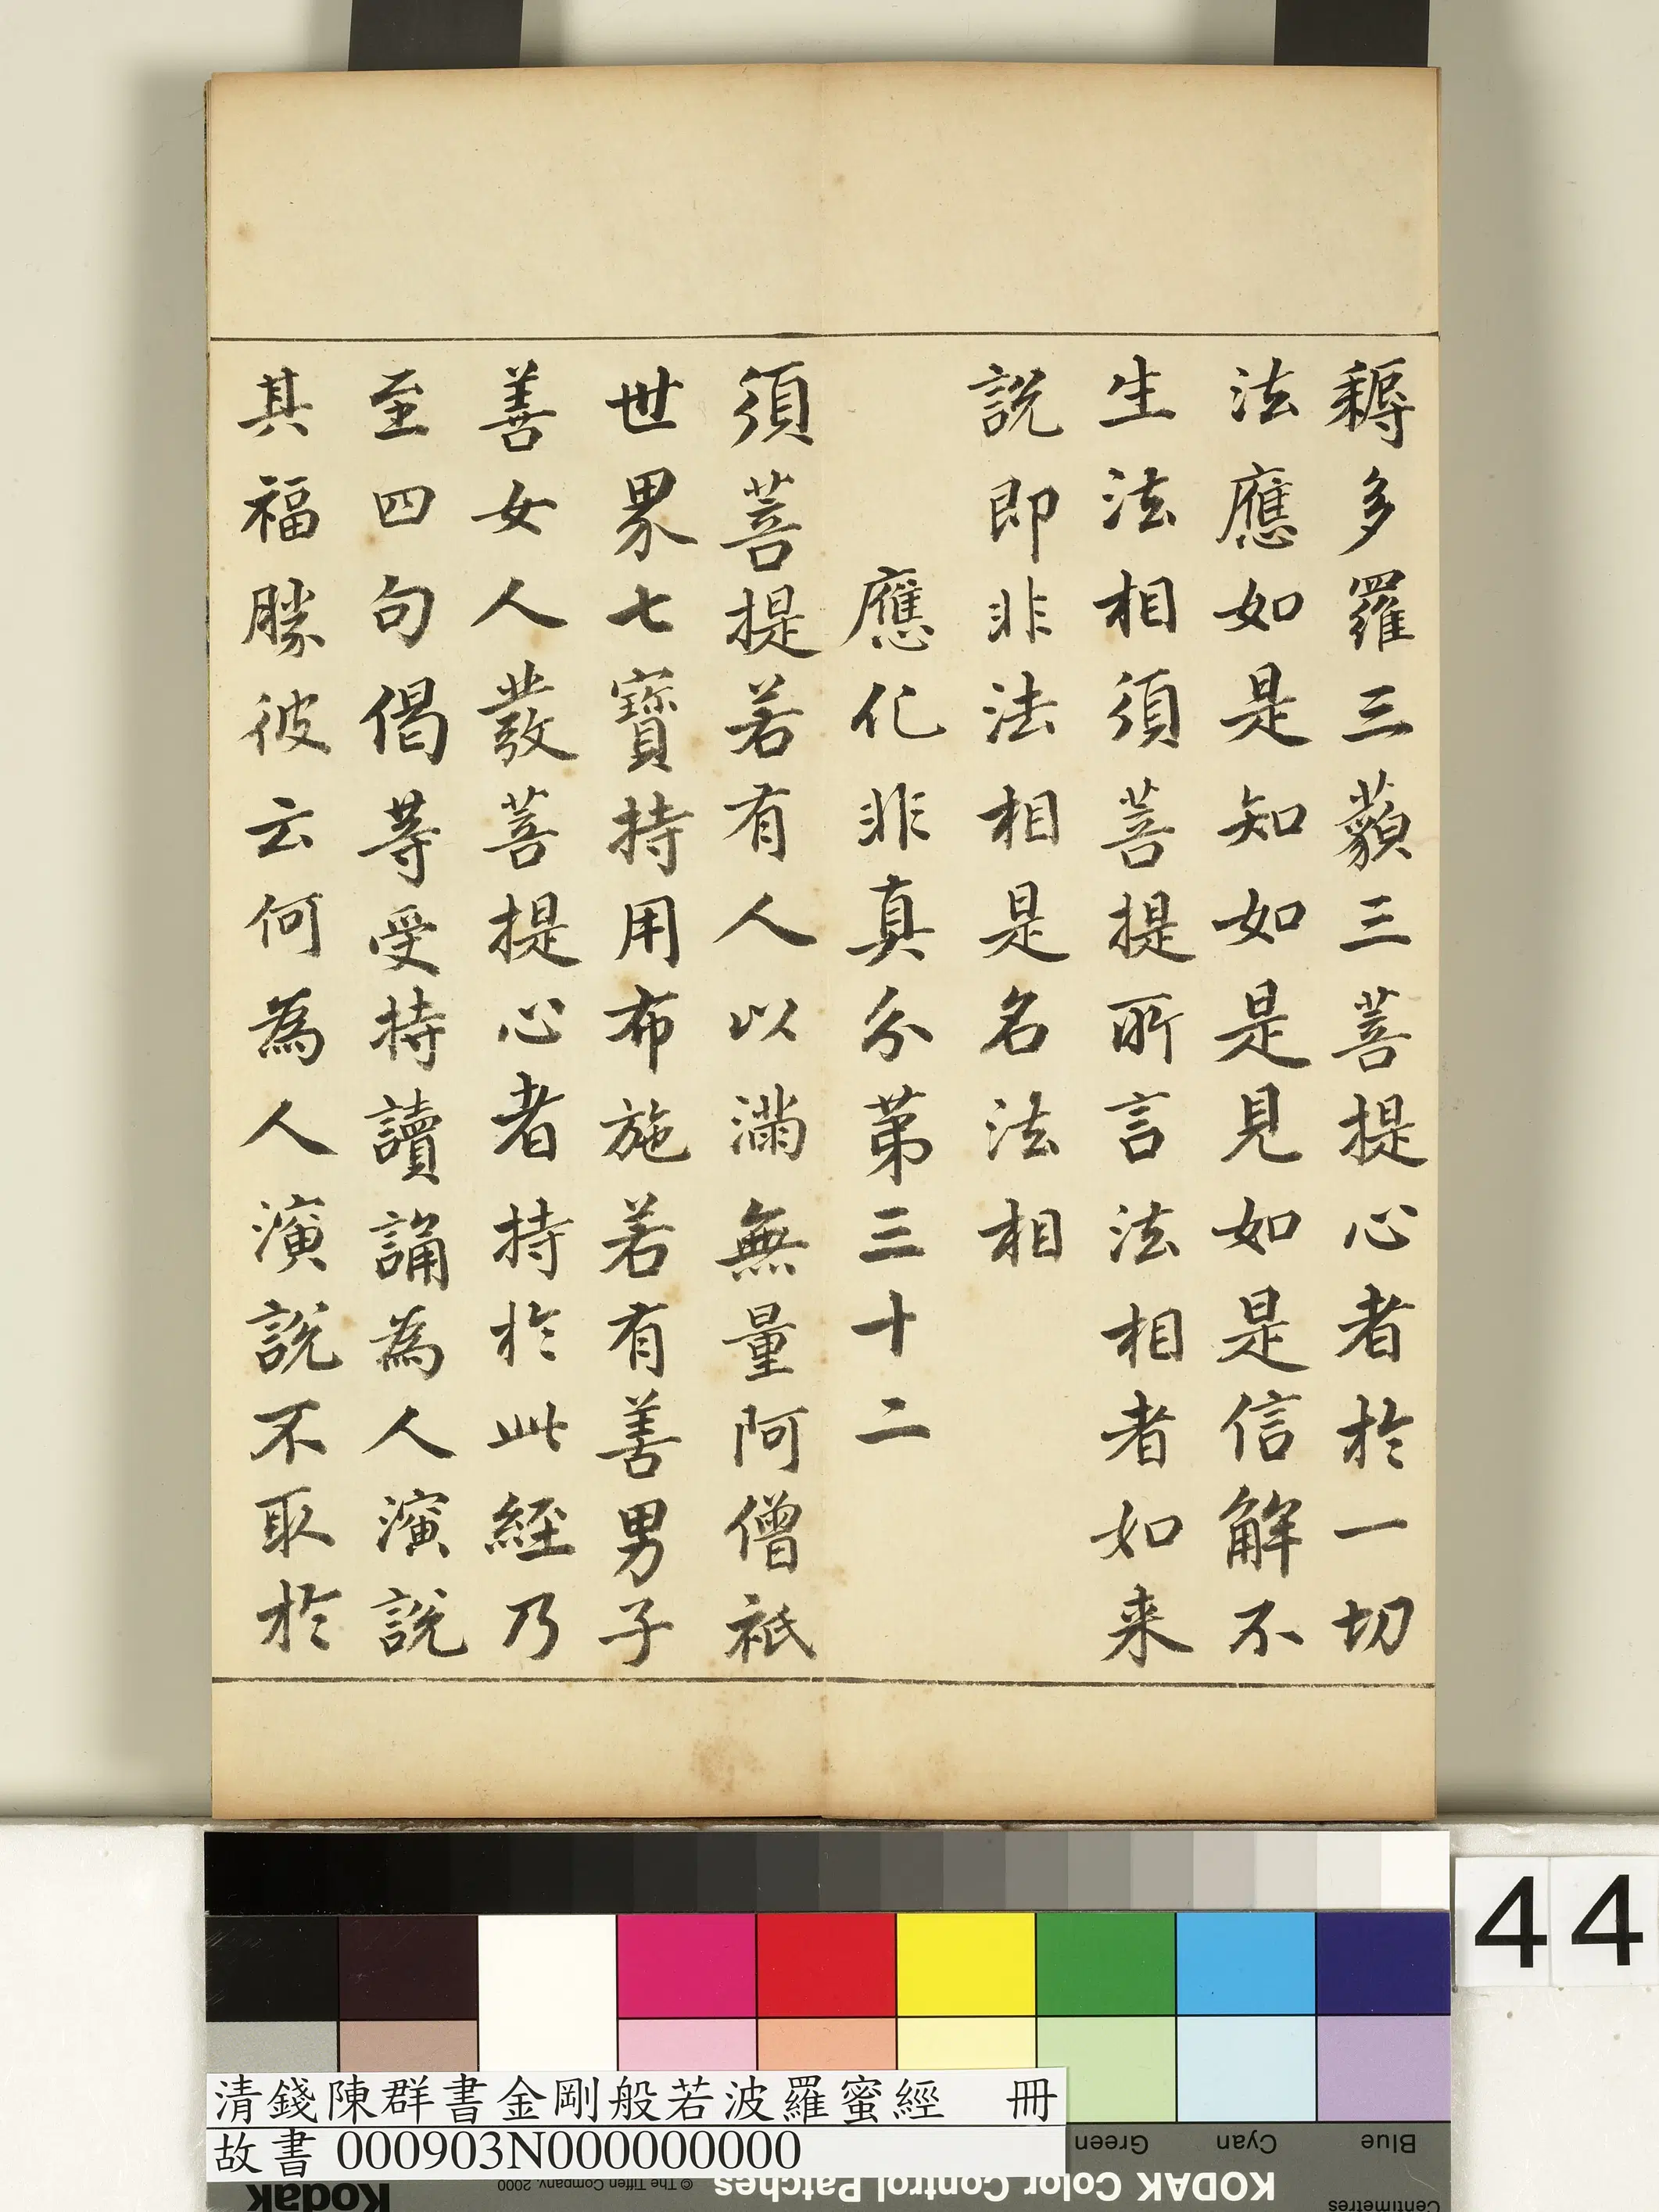 耨多羅三藐三菩提心者於一切
法應如是知如是見如是信解不
生法相須菩提所言法相者如来
說即非法相是名法相
應化非真分第三十二
須菩提若有人以滿無量阿僧祇
世界七寶持用布施若有善男子
善女人發菩提心者持於此經乃
至四句偈等受持讀誦為人演說
其福勝彼云何為人演說不取於
44
清錢陳群書金剛般若波羅蜜經 冊
故書 000903N000000000
Green
Cyan
Blue
KODAK Color Control Patches
© The Tiffen Company, 2000
Kodak
Centimetres